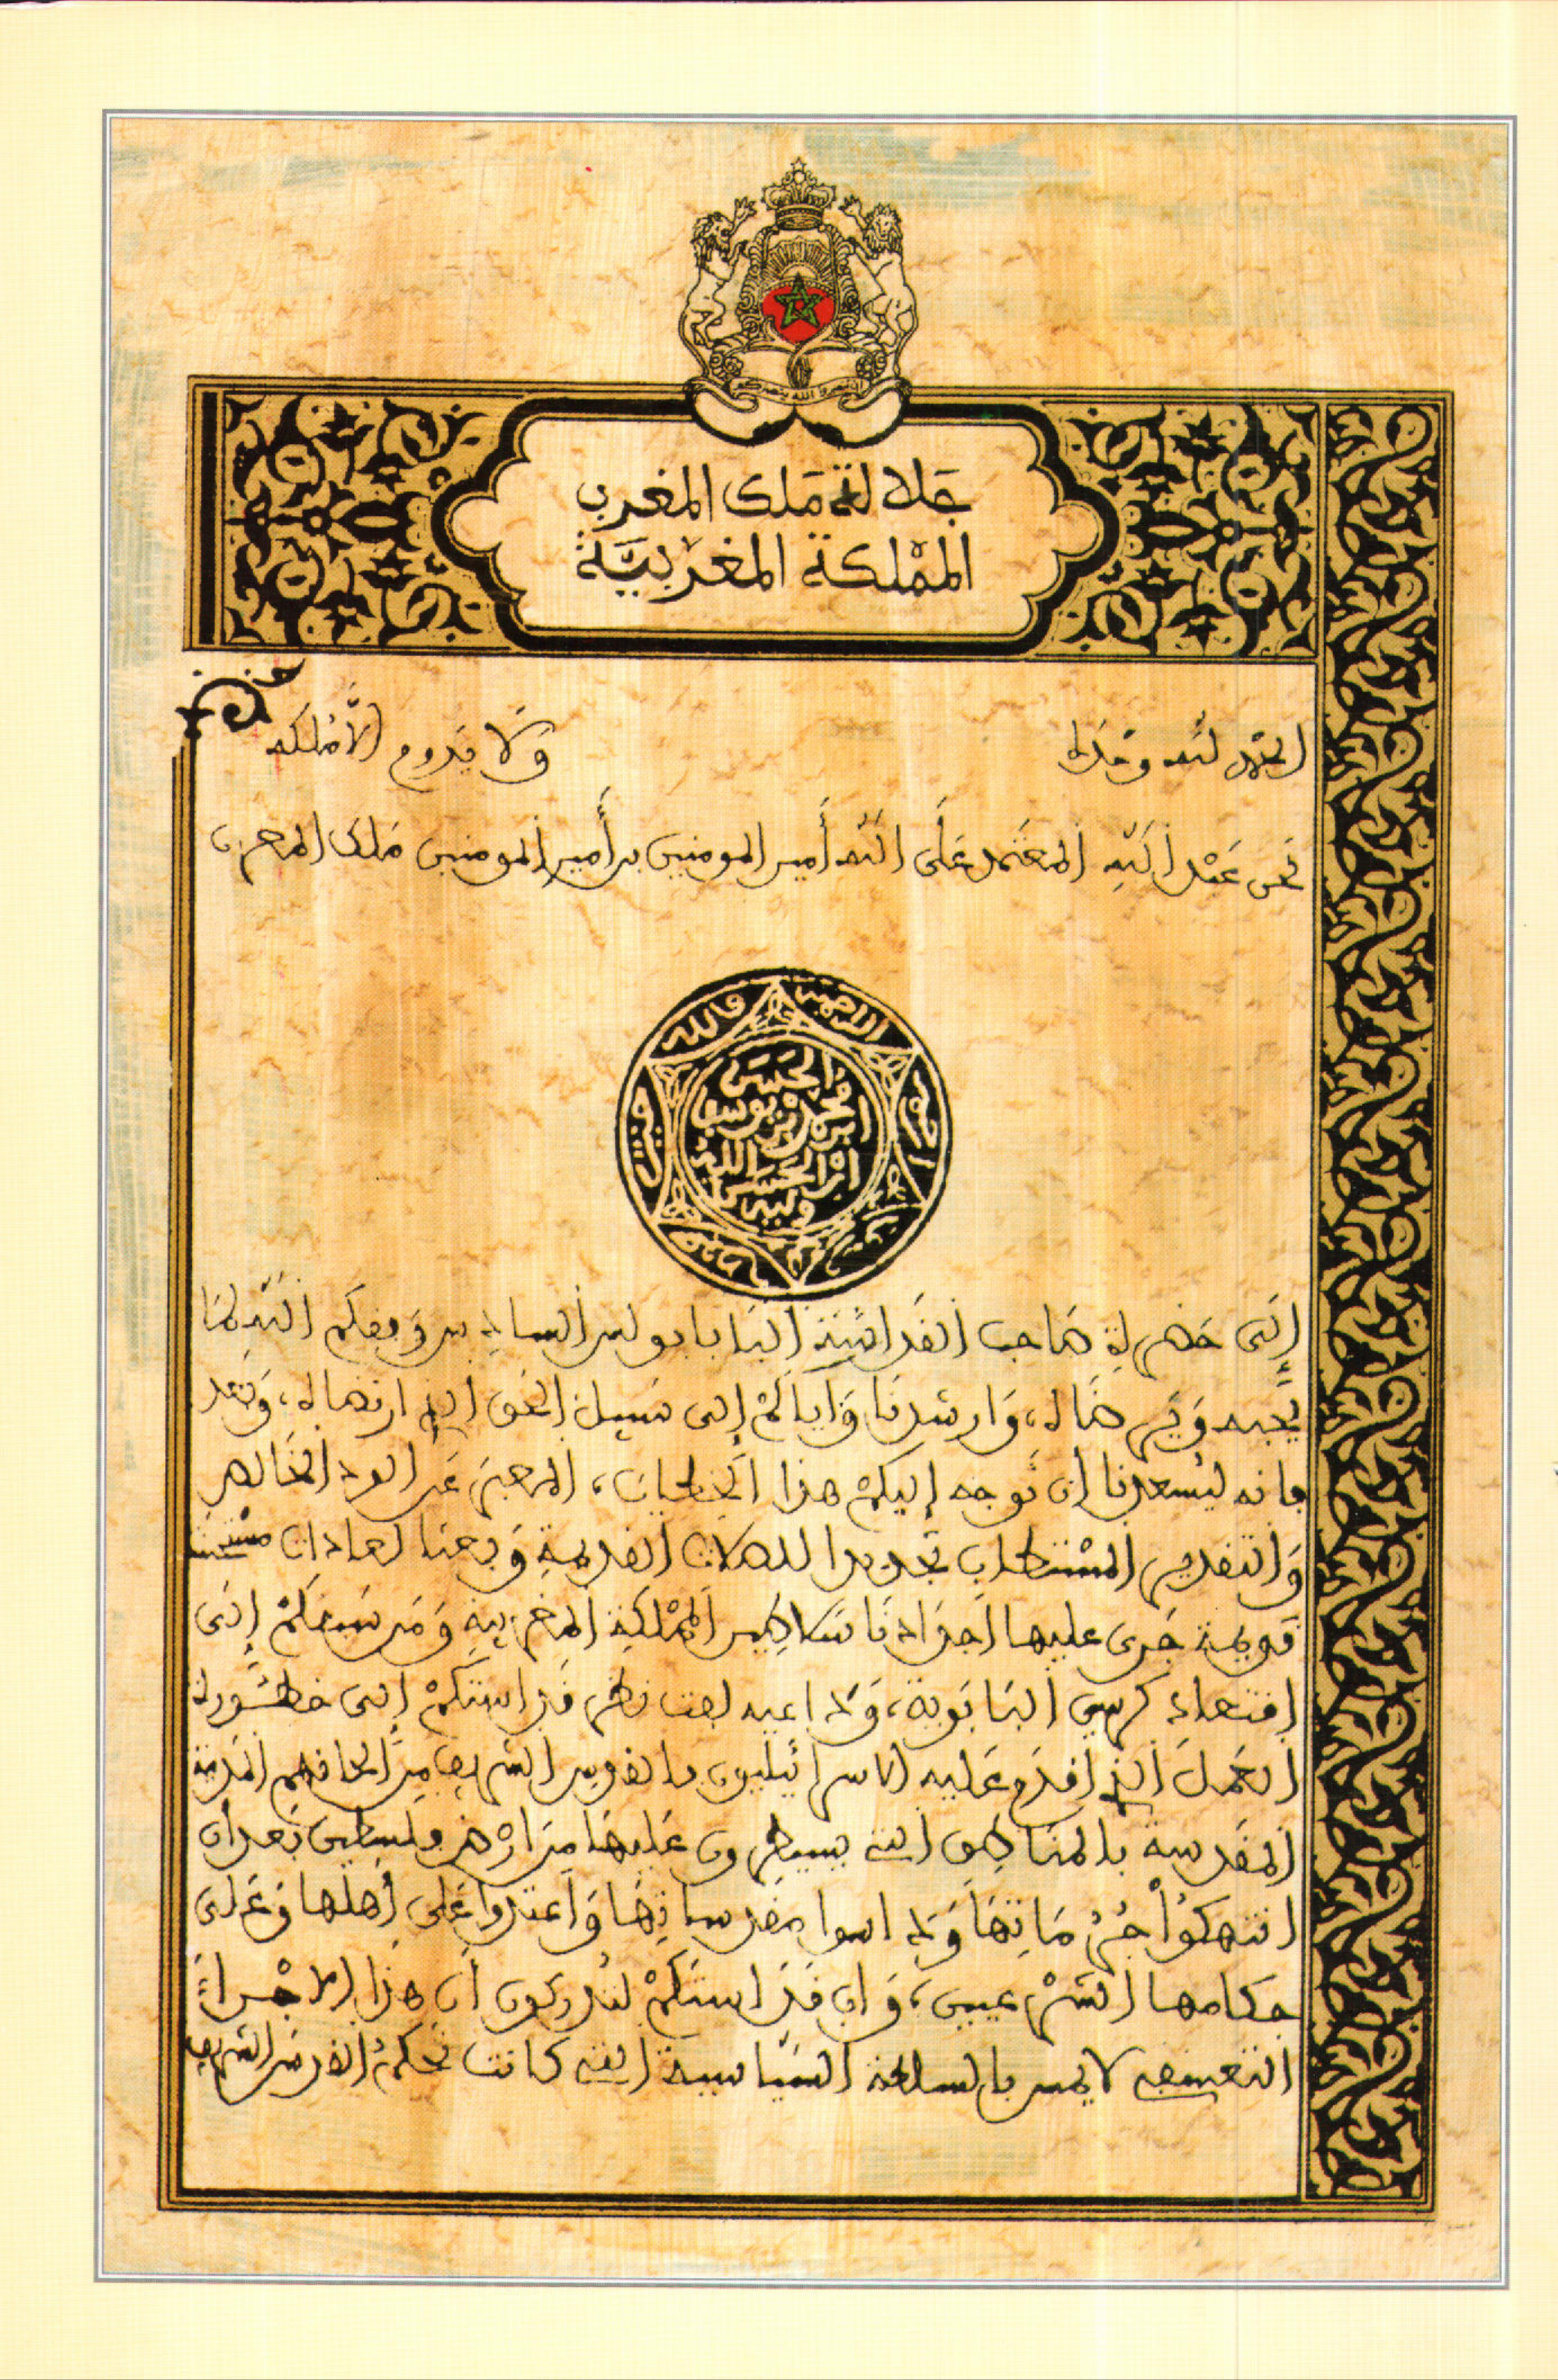 إن تنصروا الله ينصركم
جلالة ملك المغرب
المملكة المغربية
الحمد لله وحده
ولا يدوم إلا ملكه
نحن عبد الله المعتمد على الله أمير المومنين بن أمير المومنين ملك المغرب
الحسن
بن محمد بن يوسف
ابن الحسن الله
وليه
إلى حضرة صاحب القداسة البابا بولس السادس وفقكم الله لما
يحبه ويرضاه، وارشدنا وأياكم إلى سبيل الحق الذي ارتضاه، وبعد
فانه ليسعدنا أن نوجه إليكم هذا الخطاب، المعبر عن الود الخالص
والتقدير المستطاب تجديدا للصلات القديمة وبعثا لعادات مستحسنة
قويمة جرى عليها أجدادنا سلاطين المملكة المغربية ومن سبقكم إلى
اقتعاد كرسي البابوية، وداعيه لفت نظر قداستكم إلى خطورة
العمل الذي اقدم عليه الاسرائيليون بالقدس الشريف من الحاقهم المدينة
المقدسة بالمناطق التي يسيطرون عليها من ارض فلسطين بعد أن
انتهكوا حرماتها وداسوا مقدساتها واعتدوا على أهلها وعلى
حكامها الشرعيين، وان قداستكم لتدركون ان هذا الاجراء
التعسفي لا يمس بالسلطة السياسية التي كانت تحكم القدس الشريف